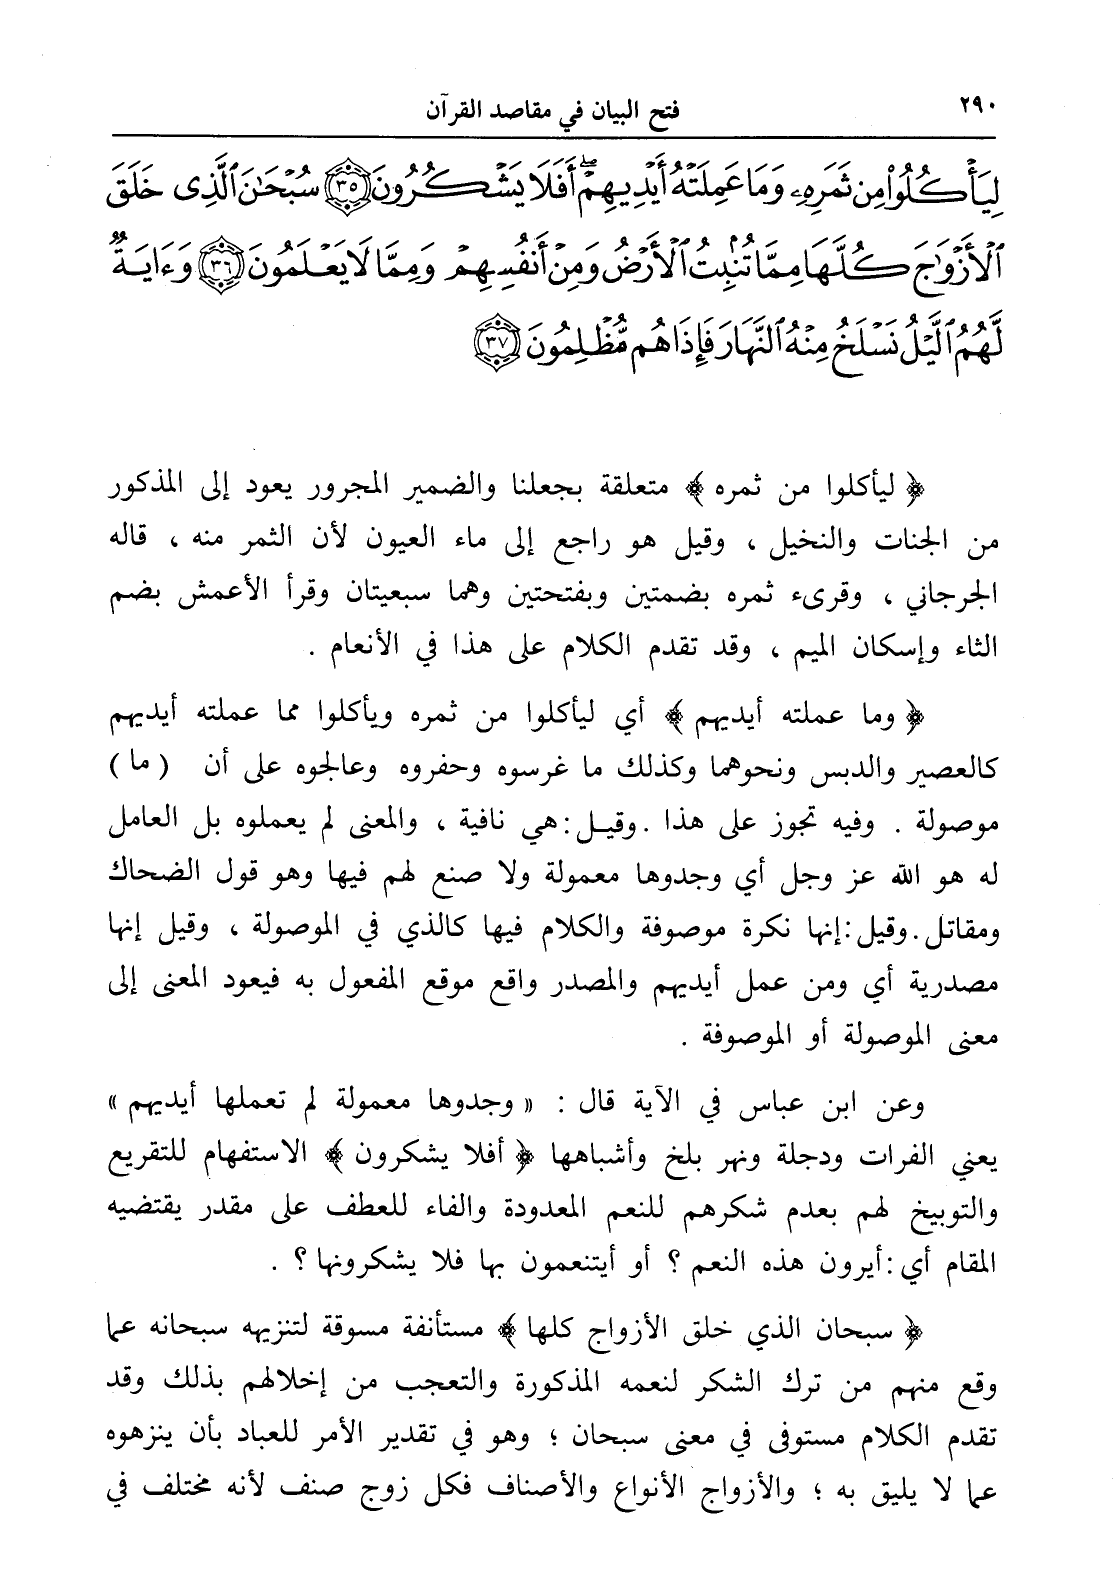 ٢٩٠ فتح البيان في مقاصد القرآن
لِيَأْكُلُوا۟ مِن ثَمَرِهِۦ وَمَا عَمِلَتْهُ أَيْدِيهِمْ ۖ أَفَلَا يَشْكُرُونَ ٣٥ سُبْحَـٰنَ ٱلَّذِى خَلَقَ
ٱلْأَزْوَٰجَ كُلَّهَا مِمَّا تُنۢبِتُ ٱلْأَرْضُ وَمِنْ أَنفُسِهِمْ وَمِمَّا لَا يَعْلَمُونَ ٣٦ وَءَايَةٌ
لَّهُمُ ٱلَّيْلُ نَسْلَخُ مِنْهُ ٱلنَّهَارَ فَإِذَا هُم مُّظْلِمُونَ ٣٧
﴿ ليأكلوا من ثمره ﴾ متعلقة بجعلنا والضمير المجرور يعود إلى المذكور
من الجنات والنخيل ، وقيل هو راجع إلى ماء العيون لأن الثمر منه ، قاله
الجرجاني ، وقرىء ثمره بضمتين وبفتحتين وهما سبعيتان وقرأ الأعمش بضم
الثاء وإسكان الميم ، وقد تقدم الكلام على هذا في الأنعام .
﴿ وما عملته أيديهم ﴾ أي ليأكلوا من ثمره ويأكلوا مما عملته أيديهم
كالعصير والدبس ونحوهما وكذلك ما غرسوه وحفروه وعالجوه على أن ( ما )
موصولة . وفيه تجوز على هذا . وقيل : هي نافية ، والمعنى لم يعملوه بل العامل
له هو الله عز وجل أي وجدوها معمولة ولا صنع لهم فيها وهو قول الضحاك
ومقاتل . وقيل : إنها نكرة موصوفة والكلام فيها كالذي في الموصولة ، وقيل إنها
مصدرية أي ومن عمل أيديهم والمصدر واقع موقع المفعول به فيعود المعنى إلى
معنى الموصولة أو الموصوفة .
وعن ابن عباس في الآية قال : « وجدوها معمولة لم تعملها أيديهم »
يعني الفرات ودجلة ونهر بلخ وأشباهها ﴿ أفلا يشكرون ﴾ الاستفهام للتقريع
والتوبيخ لهم بعدم شكرهم للنعم المعدودة والفاء للعطف على مقدر يقتضيه
المقام أي : أيرون هذه النعم ؟ أو أيتنعمون بها فلا يشكرونها ؟ .
﴿ سبحان الذي خلق الأزواج كلها ﴾ مستأنفة مسوقة لتنزيهه سبحانه عما
وقع منهم من ترك الشكر لنعمه المذكورة والتعجب من إخلالهم بذلك وقد
تقدم الكلام مستوفى في معنى سبحان ؛ وهو في تقدير الأمر للعباد بأن ينزهوه
عما لا يليق به ؛ والأزواج الأنواع والأصناف فكل زوج صنف لأنه مختلف في